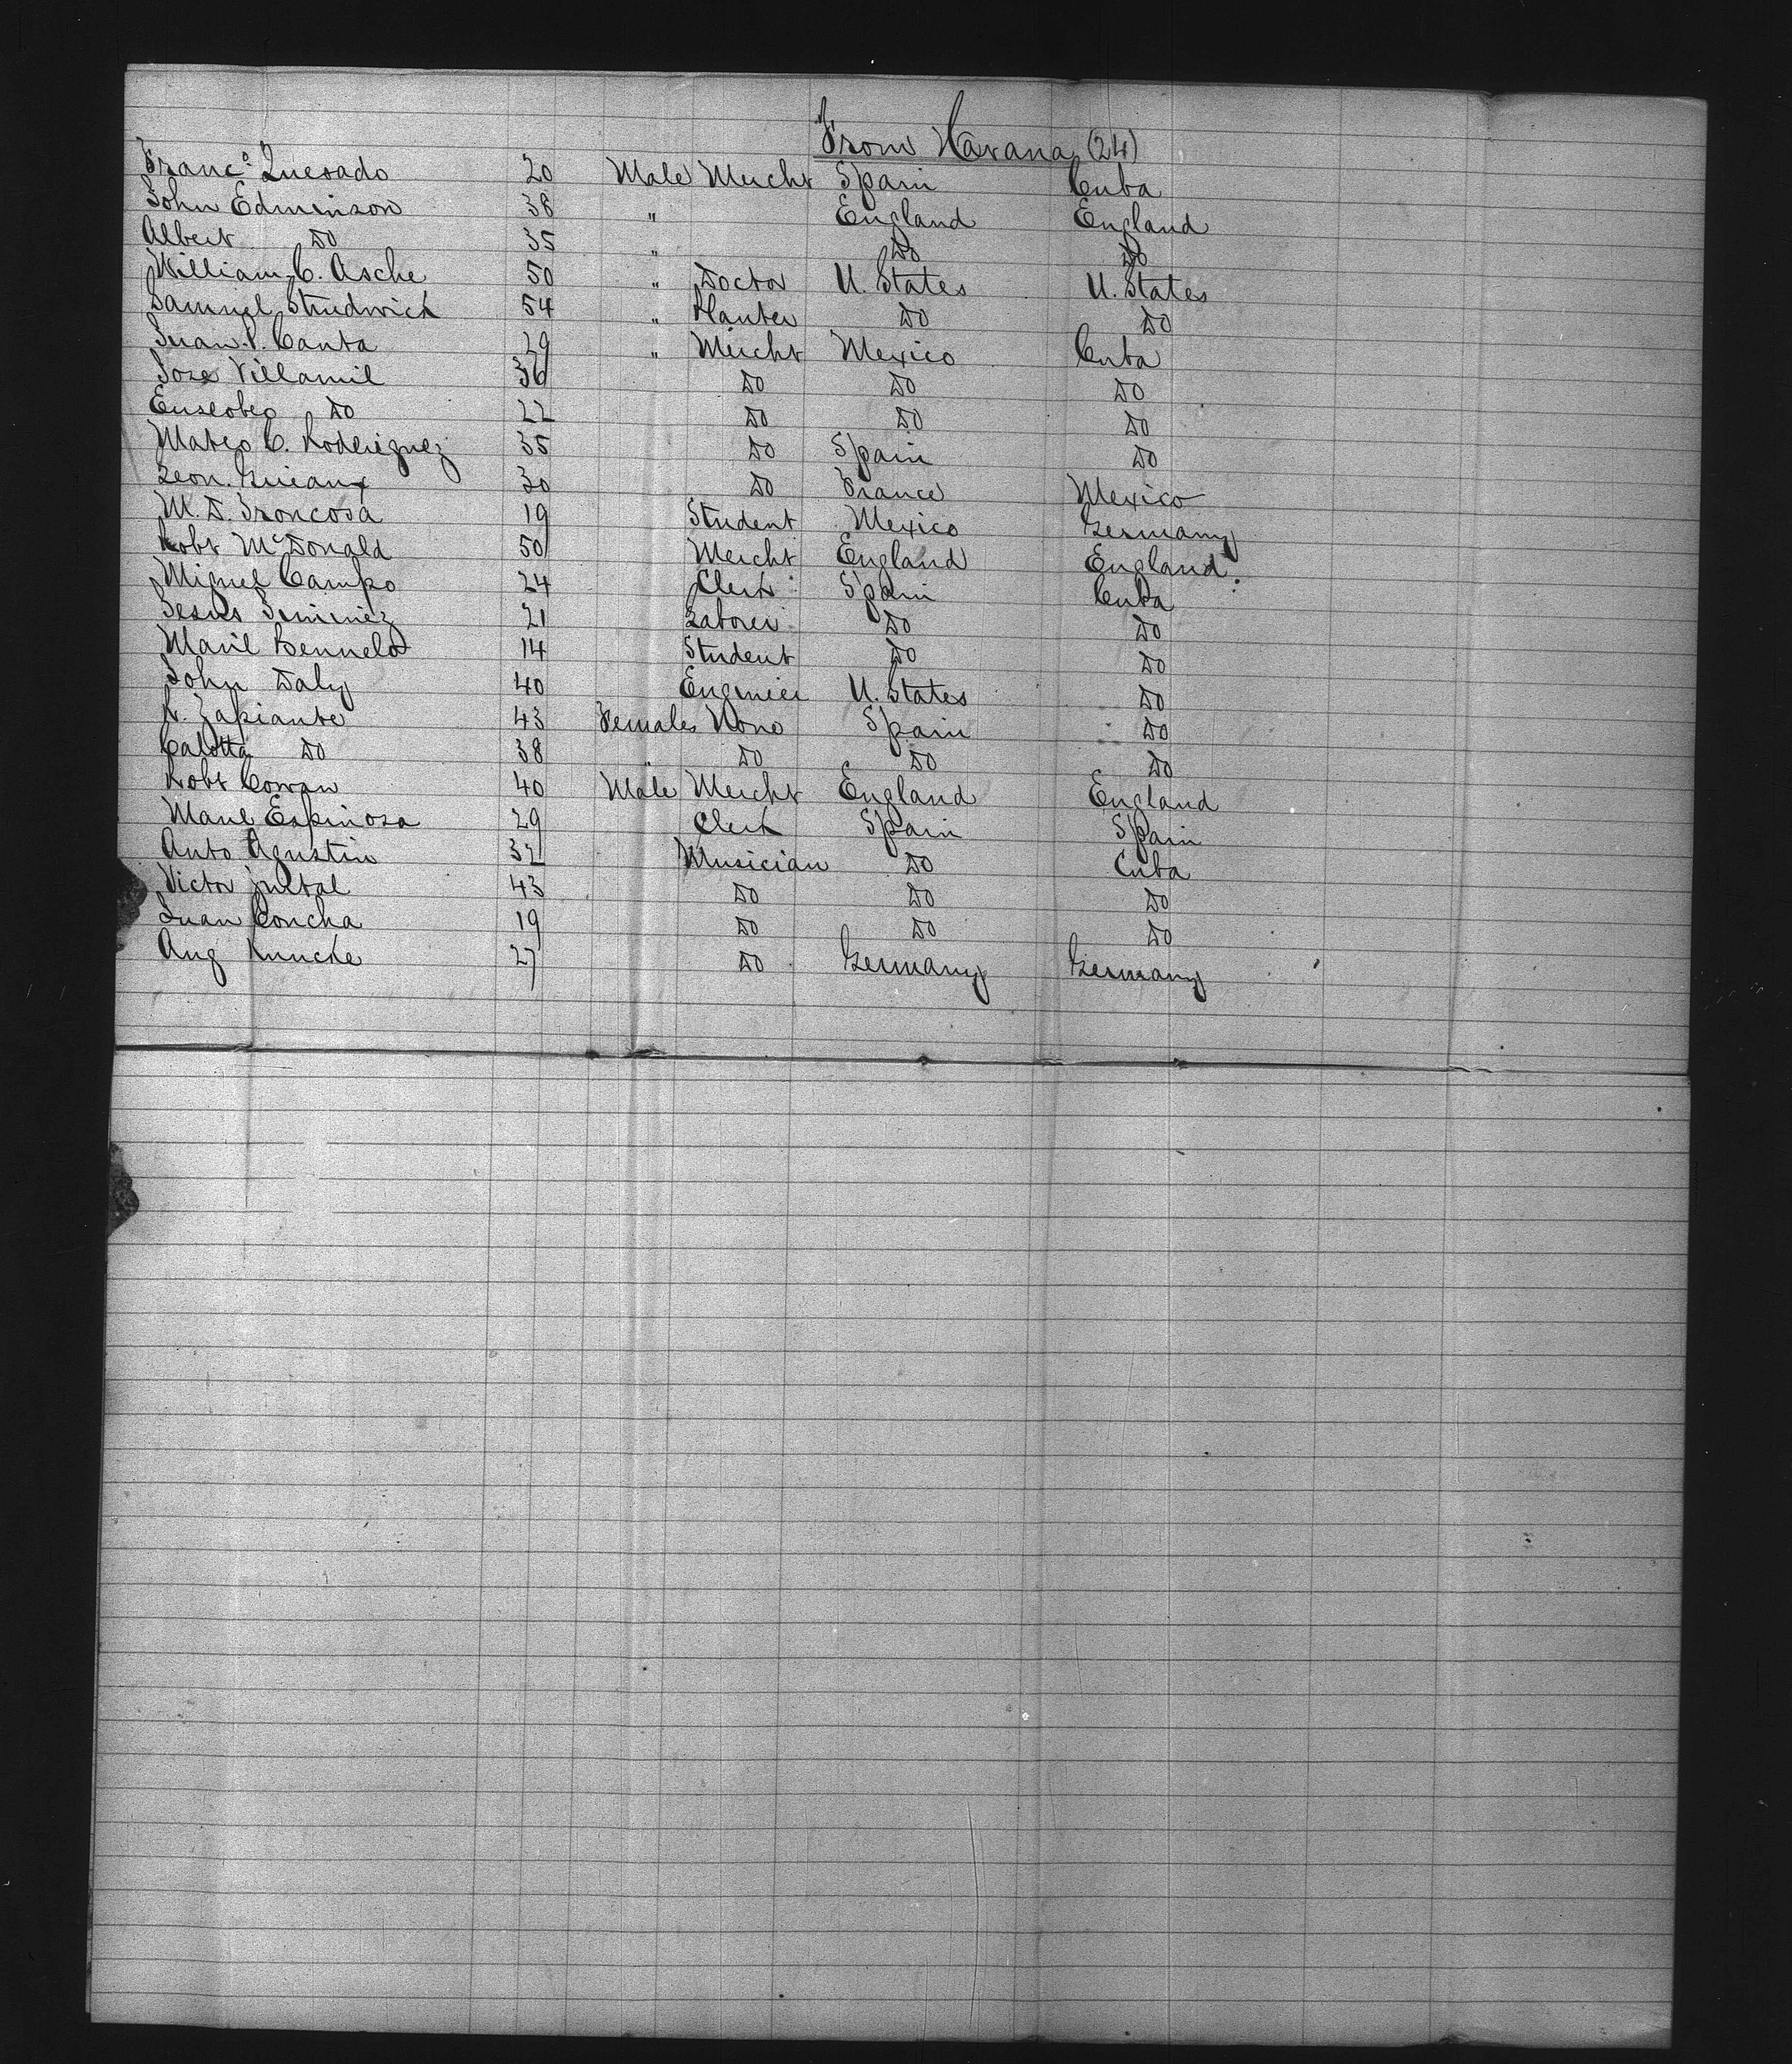 From Havana (24)
Franco Quesado 20 Male Mercht Spain Cuba
John Edminson 38 " England England
Albert Do 35 " Do Do
William C. Asche 50 " Doctor U. States U. States
Samuel Strudwick 54 " Planter Do Do
Juan P. Canta 29 " Mercht Mexico Cuba
Jose Villamil 36 Do Do Do
Do 22 Do Do Do
Mateo C. Roderiguez 35 Do Spain Do
Leon 30 Do France Mexico
M. D. Troncosa 19 Student Mexico Germany
Robt McDonald 50 Mercht England England
Miguel Campo 24 Clerk Spain Cuba
Jesus Jiminez 21 Laborer Do Do
14 Student Do Do
John Daly 40 Enginier U. States Do
43 Females None Spain Do
Calotta Do 38 " Do Do Do
Robt Cowan 40 Male Mercht England England
Manl Espinosa 29 Clerk Spain Spain
Anto Agustin 32 Musician Do Cuba
Victor 43 Do Do Do
Juan Concha 19 Do Do Do
Aug 27 Do Germany Germany